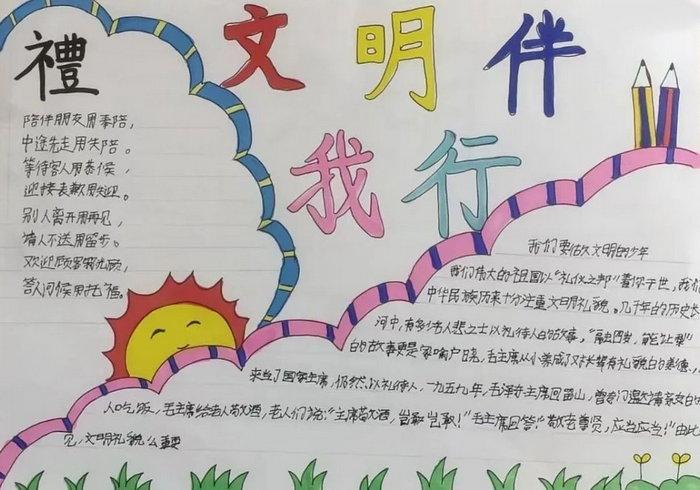 文明伴
我行
禮
陪伴朋友用奉陪，
中途先走用失陪。
等待客人用恭候，
迎接表歉用失迎。
别人离开用再见，
请人不送用留步。
欢迎顾客称光顾，
答人问候用托福。
我们要做文明的少年
我们伟大的祖国以“礼仪之邦”著称于世，我们
中华民族历来十分注重文明礼貌。几千年的历史长
河中，有多仁人志士以礼待人的故事，“融四岁，能让梨”
的故事更是家喻户晓，毛主席从小养成了对长辈有礼貌的美德，
来当了国家主席，仍然以礼待人，一九五九年，毛泽东主席回韶山，曾专门邀请
人吃饭，毛主席给老人敬酒，老人们说：“主席敬酒，岂敢岂敢！”毛主席回答：“敬老尊贤，应当应当！”由此
见，文明礼貌么重要